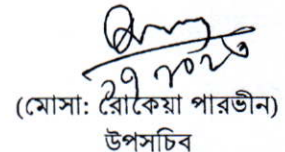 (মোসা: রোকেয়া পারভীন)
উপসচিব